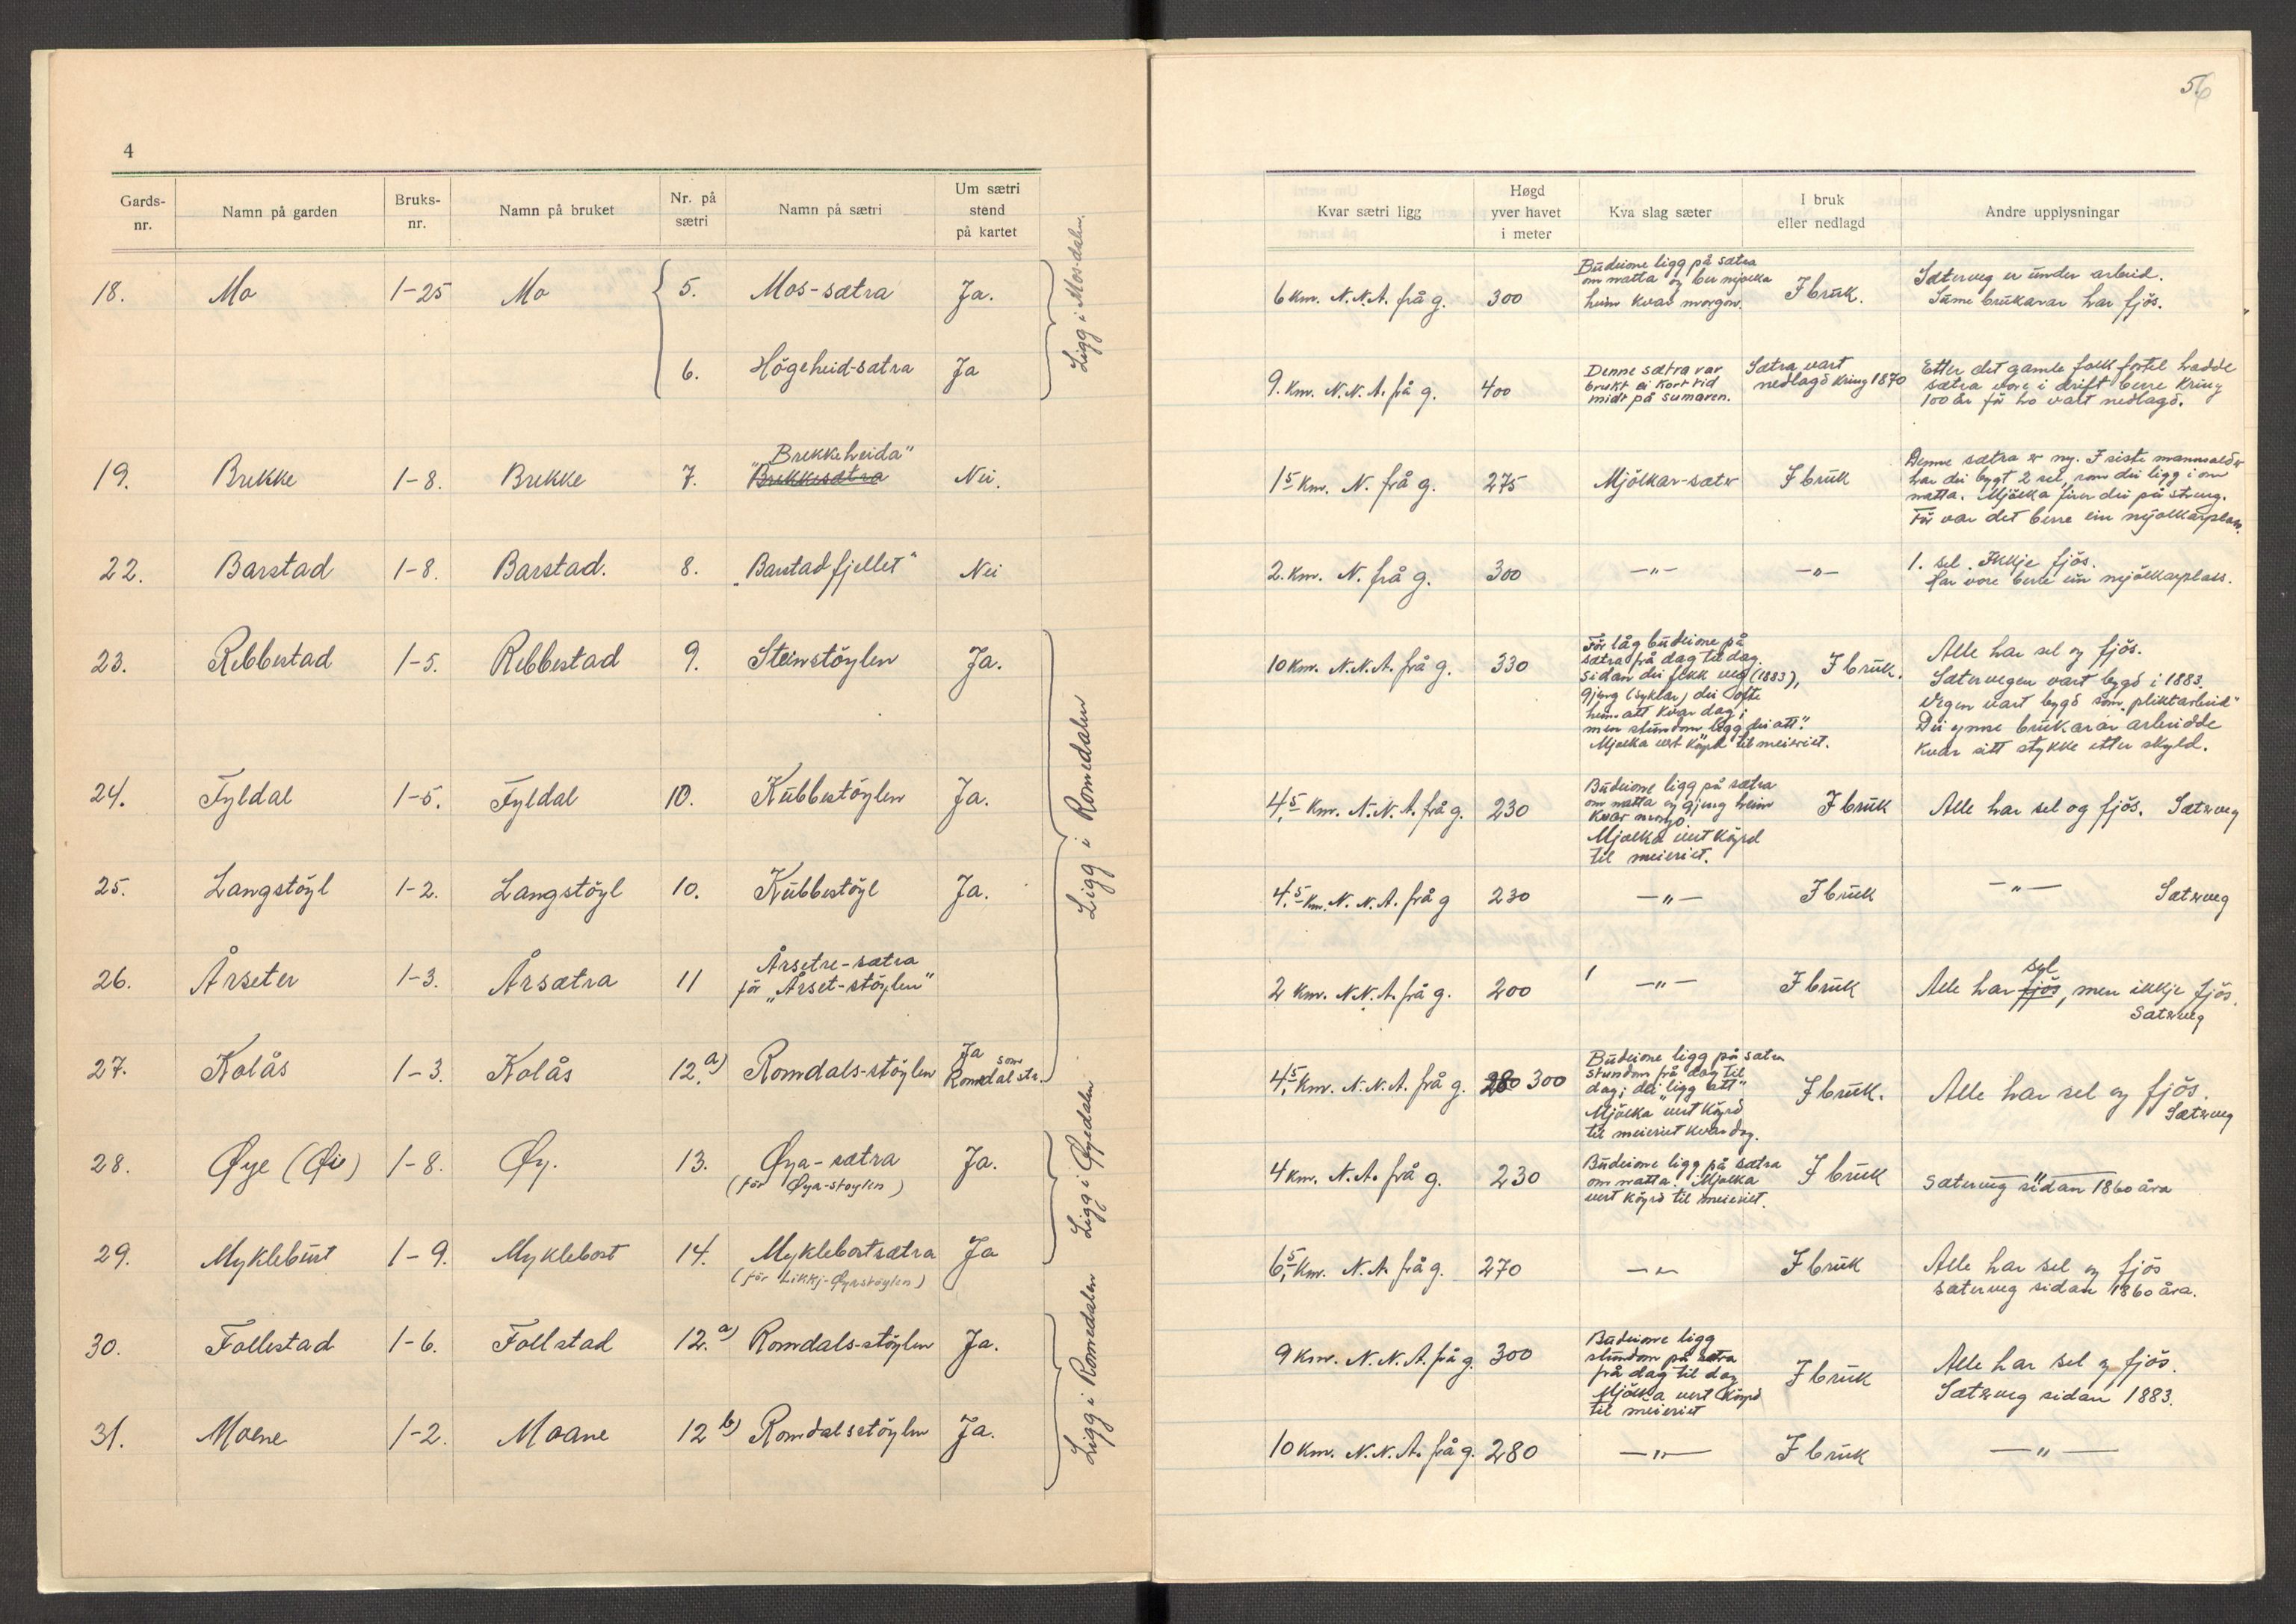 4
Gards-
nr.
Namn på garden
Bruks-
nr.
Namn på bruket
Nr. på
sætri
Namn på sætri
Um sætri
stend
på kartet
18. Mo 1-25 Mo 5. Mos-sætra Ja.
6. Högeheid-sætra Ja
Ligg i Mos-dalen.
"Brekkeheida"
19. Brekke 1-8. Brekke 7. Brekkesætra Nei.
22. Barstad 1-8. Barstad. 8. "Barstadfjellet" Nei
23. Rebbestad 1-5. Rebbestad 9. Steinstöylen Ja.
24. Fyldal 1-5. Fyldal 10. Kubbestöylen Ja.
25. Langstöyl 1-2. Langstöyl 10. Kubbestöyl Ja.
Årsetre-sætra
26. Årseter 1-3. Årsætra 11 för "Årset-stöylen"
27. Kolås 1-3. Kolås 12.a) Romdals-stöylen Ja som
Romdalstr.
Ligg i Romedalen
28. Øye (Øi) 1-8. Øy. 13. Øya-sætra Ja.
(för Øya-stöylen)
29. Myklebust 1-9. Myklebost 14. Myklebostsætra Ja
(för Likkj-Øyastöylen)
Ligg i Øyedalen
30. Follestad 1-6. Follstad 12.a) Romdals-stöylen Ja.
31. Moene 1-2. Moane 12 b) Romdalsstöylen Ja.
Ligg i Romedalen
5.
6
Kvar sætri ligg
Høgd
yver havet
i meter
Kva slag sæter
I bruk
eller nedlagd
Andre upplysningar
6 km. N.N.A. frå g. 300
Budeione ligg på sætra
om natta og ber mjølka
heim kvar morgon.
I bruk.
Sæterveg er under arbeid.
Sume brukarar har fjös.
9. km. N.N.A. frå g. 400
Denne sætra var
brukt ei kort tid
midt på sumaren.
Sætra vart
nedlagd kring 1870
Etter det gamle folk fortel hadde
sætra vore i drift berre kring
100 år för ho vart nedlagd.
1⁵ km. N. frå g. 275 Mjölkar-sæter I bruk
Denne sætra er ny. I siste mannsalder
har dei bygt 2 sel, som dei ligg i om
natta. Mjölka firer dei på streng.
För var det berre ein mjölkarplass.
2. km. N. frå g. 300 -"- -"-
1. sel. Ikkje fjös.
Har vore berre ein mjölkarplass.
10 km. N.N.A. frå g. 330
För låg budeione på
sætra frå dag til dag.
Sidan dei fekk veg (1883),
gjeng (syklar) dei ofte
heimatt kvar dag;
men stundom "ligg dei att".
Mjølka vert köyrd til meieriet.
I bruk.
Alle har sel og fjös.
Sætervegen vart bygd i 1883.
Vegen vart bygd som "pliktarbeid"
Dei ymse brukarar arbeidde
kvar sitt stykke etter skyld.
4,⁵ km. N.N.A. frå g. 230
Budeione ligg på sætra
om natta og gjeng heim
kvar morgo.
Mjølka vert köyrd
til meieriet.
I bruk
Alle har sel og fjös. Sæterveg
4,⁵ km. N.N.A. frå g 230 -"- I bruk -"- Sæterveg
2 km. N.N.A. frå g. 200 -"- I bruk
sel
Alle har fjös, men ikkje fjös.
Sæterveg
4,⁵ km. N.N.A. frå g. 280 300
Budeione ligg på sætra
stundom frå dag til
dag; dei "ligg att"
Mjölka vert köyrd
til meieriet kvar dag.
I bruk.
Alle har sel og fjös.
Sæterveg
4 km. N.A. frå g. 230
Budeione ligg på sætra
om natta. Mjølka
vert köyrd til meieriet.
I bruk
-"-
Sæterveg sidan 1860 åra
6,⁵ km. N.A. frå g. 270 -"- I bruk
Alle har sel og fjös
Sæterveg sidan 1860 åra.
9 km. N.N.A. frå g. 300
Budeione ligg
stundom på sætra
frå dag til dag
Mjölka vert köyrd
til meieriet
I bruk
Alle har sel og fjös.
Sæterveg sidan 1883.
10 km. N.N.A. frå g. 280 -"- I bruk -"-